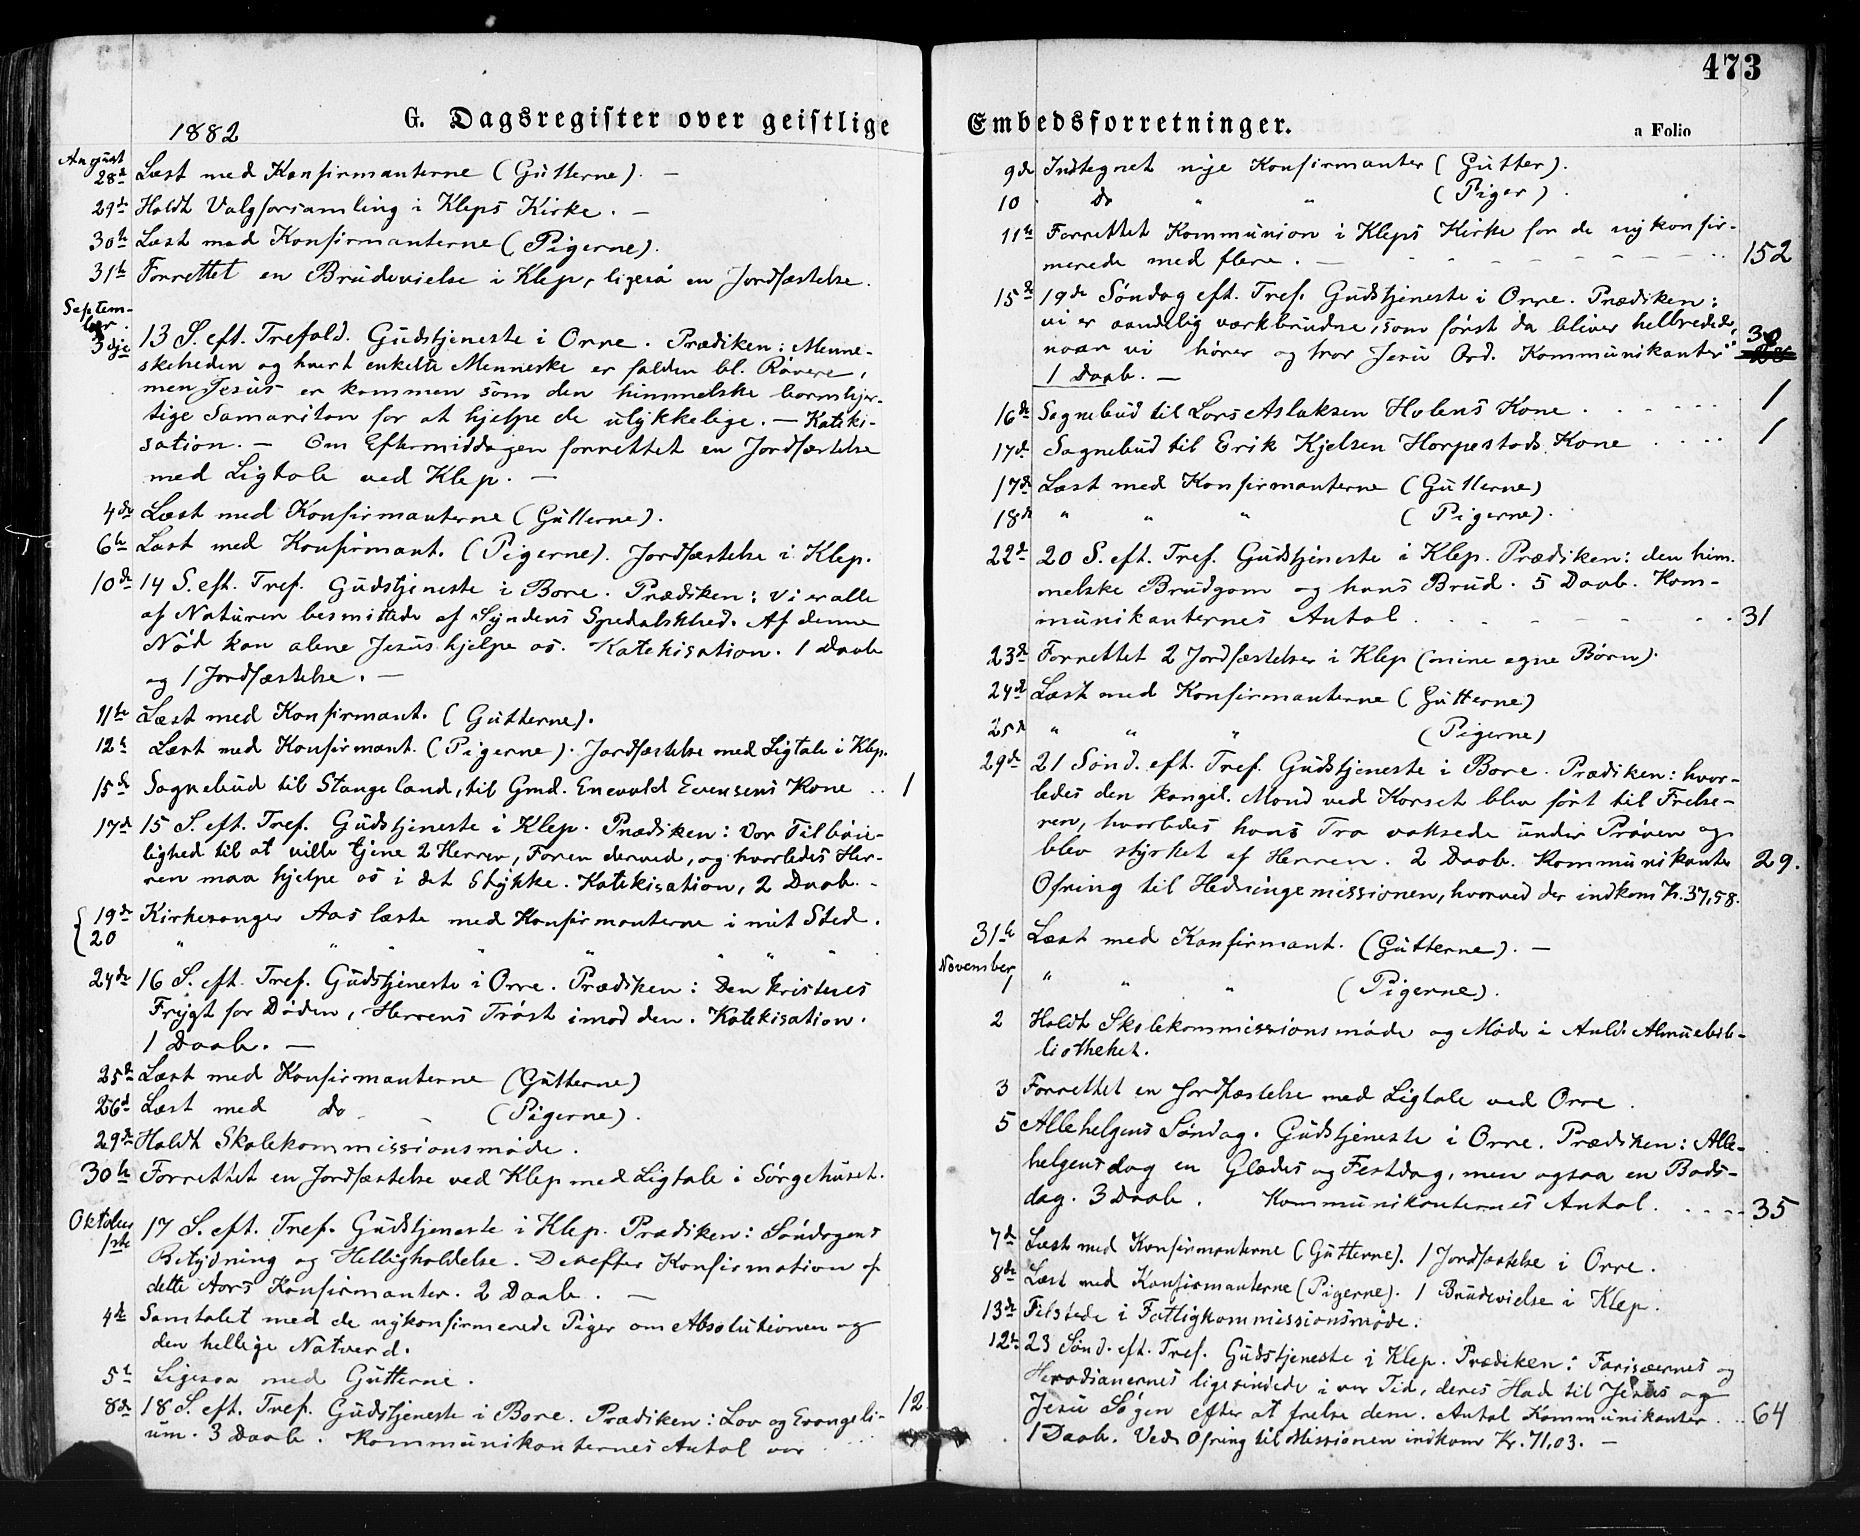 473
G. Dagsregister over geistlige Embedsforretninger.
a Folio
1882
August
28d Læst med Konfirmanterne (Gutterne). —
29d Holdt Valgforsamling i Kleps Kirke. —
30te Læst med Konfirmanterne (Pigerne).
31te Forrettet en Brudevielse i Klep, ligeså en Jordfæstelse.
September.
3dje 13 S. eft. Trefold. Gudstjeneste i Orre. Prædiken: Menne-
skeheden og hvert enkelte Menneske er falden bl. Røvere,
men Jesus er kommen som den himmelske barmhjer-
tige Samaritan for at hjelpe de ulykkelige. — Kateki-
sation. — Om Eftermiddagen forrettet en Jordfæstelse
med Ligtale ved Klep. —
4de Læst med Konfirmanterne (Gutterne).
6te Læst med Konfirmant. (Pigerne). Jordfæstelse i Klep.
10de 14 S. eft. Tref. Gudstjeneste i Bore. Prædiken: Vi er alle
af Naturen besmittede af Syndens Spedalskhed. Af denne
Nød kan alene Jesus hjelpe os. Katekisation. 1 Daab
og 1 Jordfæstelse. —
11te Læst med Konfirmant. (Gutterne).
12te Læst med Konfirmant. (Pigerne). Jordfæstelse med Ligtale i Klep.
15de Sognebud til Stangeland, til Gmd. Enevald Evensens Kone .. 1
17de 15 S. eft. Tref. Gudstjeneste i Klep. Prædiken: Vor Tilbøie-
lighed til at ville tjene 2 Herrer, Faren derved, og hvorledes Her-
ren maa hjelpe os i det Stykke. Katekisation, 2 Daab. -
19de Kirkesanger Aas læste med Konfirmanterne i mit Sted.
20 " " " " " " " "
24de 16 S. eft. Tref. Gudstjeneste i Orre. Prædiken: Den kristnes
Frygt for Døden, Herrens Trøst imod den. Katekisation.
1 Daab. —
25de Læst med Konfirmanterne (Gutterne)
26d Læst med do - - (Pigerne).
29de Holdt Skolekommissionsmøde.
30te Forrettet en Jordfæstelse ved Klep med Ligtale i Sørgehuset.
Oktober
1ste 17 S. eft. Tref. Gudstjeneste i Klep. Prædiken: Søndagens
Betydning og Helligholdelse. Derefter Konfirmation af
dette Aars Konfirmanter. 2 Daab. —
4de Samtalet med de nykonfirmerede Piger om Absolutionen og
den hellige Natverd.
5t Ligesaa med Gutterne.
8de 18 S. eft. Tref. Gudstjeneste i Bore. Prædiken: Lov og Evangeli-
um. 3 Daab. Kommunikanternes Antal var ... 12.
9de Indtegnet nye Konfirmanter (Gutter).
10 Do " " (Piger).
11te Forrettet Kommunion i Kleps Kirke for de nykonfir-
merede med flere. — - - - - - - - 152
15de 19de Søndag eft. Tref. Gudstjeneste i Orre. Prædiken:
vi er aandelig værkbrudne, som først da bliver helbredede,
naar vi hører og tror Jesu Ord. Kommunikanter .. 30
1 Daab. —
16de Sognebud til Lars Aslaksen Holens Kone . . . . . 1
17de Sognebud til Erik Kjelsen Horpestads Kone . . . . 1
17de Læst med Konfirmanterne (Gutterne)
18de " " " (Pigerne).
22de 20 S. eft. Tref. Gudstjeneste i Klep. Prædiken: den him-
melske Brudgom og hans Brud. 5 Daab. Kom-
munikanternes Antal . - - - - - . 31
23de Forrettet 2 Jordfæstelser i Klep (mine egne Børn).
24de Læst med Konfirmanterne (Gutterne)
25d " " " (Pigerne)
29de 21 Sønd. eft. Tref. Gudstjeneste i Bore. Prædiken: hvor-
ledes den kongel. Mand ved Korset blev ført til Frelse-
ren, hvorledes hans Tro voksede under Prøven og
blev styrket af Herren. 2 Daab. Kommunikanter 29.
Ofring til Hedningemissionen, hvorved der indkom Kr. 37,58.
31te Læst med Konfirmant. (Gutterne). —
November
1 " " " (Pigerne).
2 Holdt Skolekommissionsmøde og Møde i Anl. Almuebib-
liotheket.
3 Forrettet en Jordfæstelse med Ligtale ved Orre.
5 Allehelgens Søndag. Gudstjeneste i Orre. Prædiken: Alle-
helgensdag en Glædes og Festdag, men ogsaa en Bods-
dag. 3 Daab. Kommunikanternes Antal. . . - - 35
7de Læst med Konfirmanterne (Gutterne). 1 Jordfæstelse i Orre.
8de Læst med Konfirmanterne (Pigerne). 1 Brudevielse i Klep.
13de Tilstede i Fattigkommissionsmøde.
12te 23 Sønd. eft. Tref. Gudstjeneste i Klep. Prædiken: Farisæernes og
Herodianernes ligesindede i vor Tid, deres Had til Jesus og
Jesu Søgen efter at frelse dem. Antal Kommunikanter . .. 64
1 Daab. Ved Ofring til Missionen indkom Kr. 71,03. —